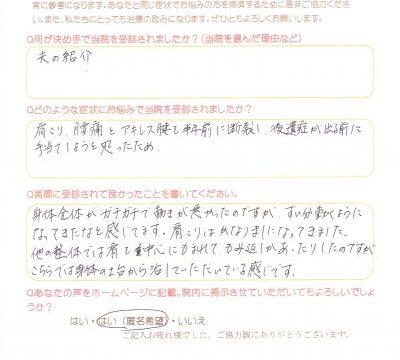 常に参考になります。あなたと同じ症状でお悩みの方を救済するために是非ご協力くださ
い。また、私たちにとっても治療の励みになります。ぜひともよろしくお願いします。
Q何が決め手で当院を受診されましたか？(当院を選んだ理由など)
夫の紹介
Qどのような症状にお悩みで当院を受診されましたか？
肩こり、腰痛とアキレス腱を半年前に断裂し、後遺症が出る前に
手当てしようと思ったため。
Q実際に受診されて良かったことを書いてください。
身体全体がガチガチで動きが悪かったのですが、ずい分動くように
なってきたなと感じてます。肩こりはかなりましになってきました。
他の整体では肩を重中心にもまれてもみ返しがあったりしたのですが
こちらでは身体の土台から治していただいている感じです。
Qあなたの声をホームページに記載、院内に掲示させていただいてもよろしいでしょ
うか？
はい・はい（匿名希望）・いいえ
ご記入お疲れ様でした。ご協力誠にありがとうございます。